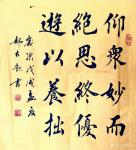 仰衆妙而
絕思終優
遊以養拙
歲次戊戌孟夏
書